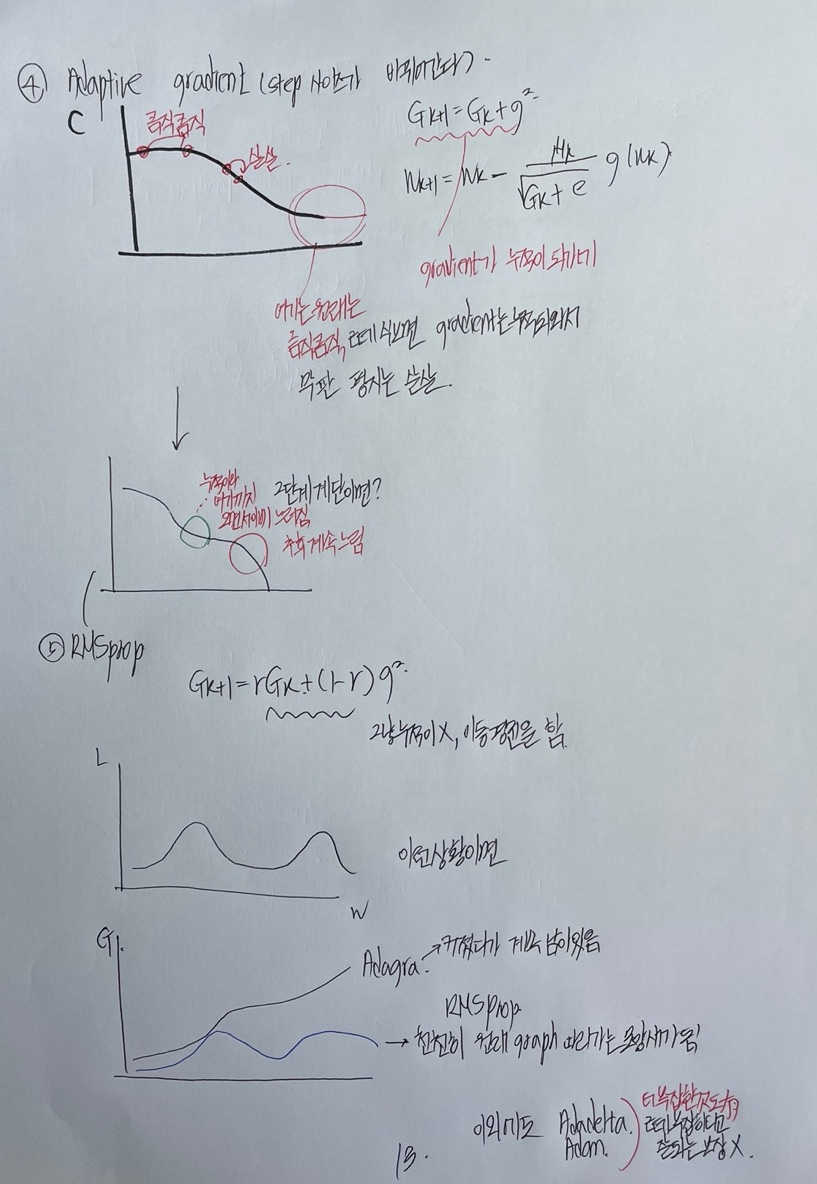 ④ Adaptive gradient (step 사이즈가 바뀌어간다).
C
큼직큼직
살살.
Gk+1=Gk+g².
Wk+1=Wk- μk/√(Gk+e) g(Wk)
gradient가 누적이 되기에
여기는 원래는
큼직큼직, 근데 식보면 gradient는 누적되와서
막판 평지는 살살.
누적이와
여기까지
오면서 이미 느려짐
2단계 계단이면?
추후 계속 느림
⑤ RMSprop
Gk+1=rGk+(1-r)g².
그냥 누적이 X, 이동평균을 함.
L
이런상황이면
W
G
Adagra. → 커졌다가 계속 남아있음
RMSprop
→ 천천히 원래 graph 따라가는 모양새가 됨
이외에도 Adadelta.
Adam.
더 복잡한것도 有
근데 복잡하다고
잘되는 보장 X.
13.